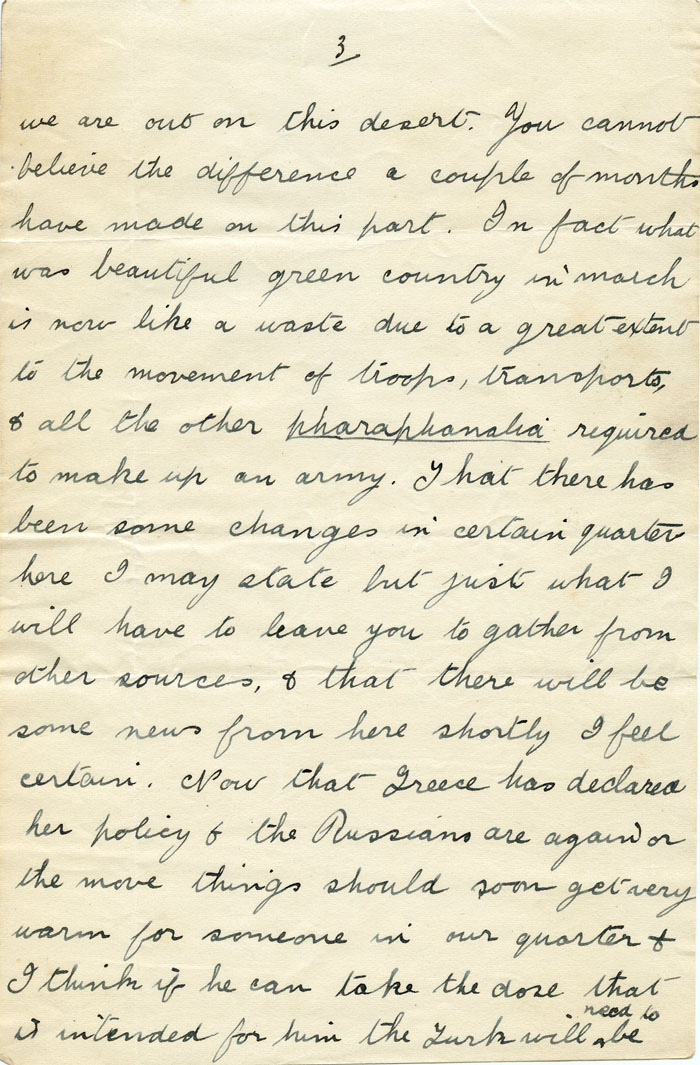 3
we are out on this desert. You cannot
believe the difference a couple of months
have made on this part. In fact what
was beautiful green country in march
is now like a waste due to a great extent
to the movement of troops, transports,
& all the other pharaphanalia required
to make up an army. That there has
been some changes in certain quarter
here I may state but just what I
will have to leave you to gather from
other sources, & that there will be
some news from here shortly I feel
certain. Now that Greece has declared
her policy & the Russians are again or
the move things should soon get very
warm for someone in our quarter &
I think if he can take the dose that
is intended for him the Turk will need to be